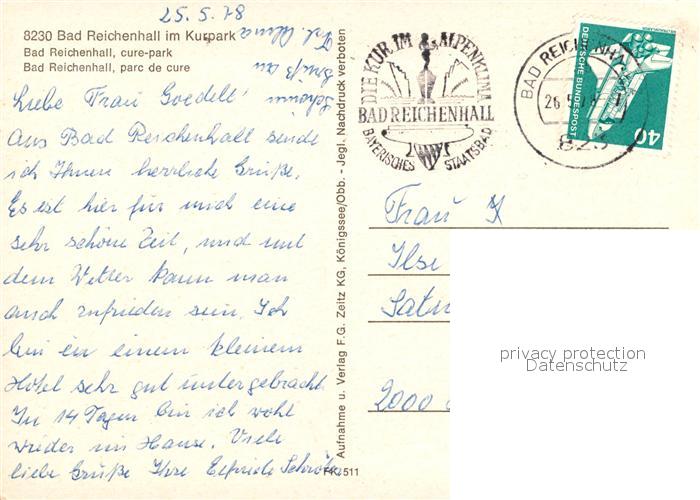 25. 5. 78
8230 Bad Reichenhall im Kurpark
Bad Reichenhall, cure-park
Bad Reichenhall, parc de cure
Liebe Frau Goedelt!
Aus Bad Reichenhall sende
ich Ihnen herrliche Grüße.
Es ist hier für mich eine
sehr schöne Zeit, und mit
dem Wetter kann man
auch zufrieden sein. Ich
bin in einem kleinem
Hotel sehr gut untergebracht
In 14 Tagen bin ich wohl
wieder im Hause. Viele
liebe Grüße Ihre Elfriede
Schönen
Gruß an
Frl.
Aufnahme u. Verlag F.G. Zeitz KG, Königssee/Obb. - Jegl. Nachdruck verboten
FK 511
DIE KUR IM ALPENKLIMA
BAD REICHENHALL
BAYERISCHES STAATSBAD
BAD REICHENHA
26.5.
823
DEUTSCHE BUNDESPOST
40
Frau
Ilse
2000
privacy protection
Datenschutz